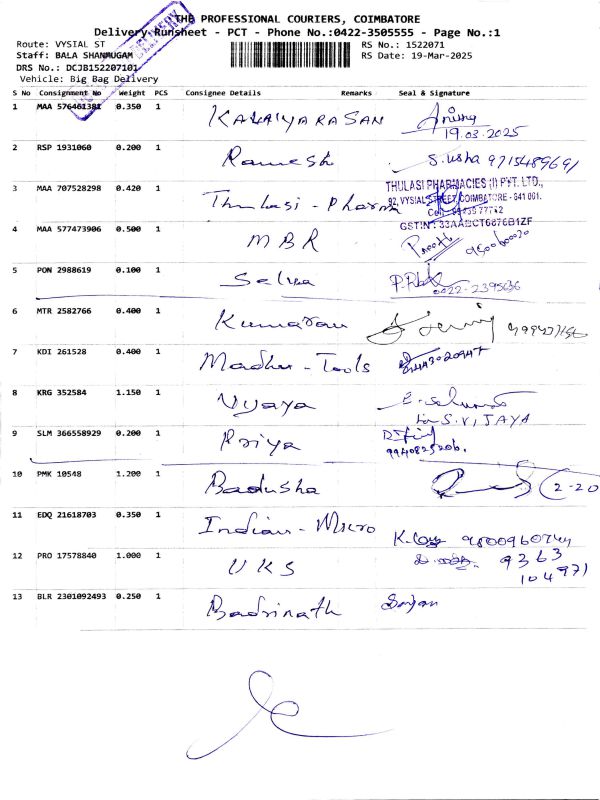 THE PROFESSIONAL COURIERS, COIMBATORE
Delivery Runsheet - PCT - Phone No.:0422-3505555 - Page No.:1
Route: VYSIAL ST RS No.: 1522071
Staff: BALA SHANMUGAM RS Date: 19-Mar-2025
DRS No.: DCJB152207101
Vehicle: Big Bag Delivery
S No Consignment No Weight PCS Consignee Details Remarks Seal & Signature
1 MAA 576461381 0.350 1 KALAIYARASAN
19.03.2025
2 RSP 1931060 0.200 1 Ramesh S.usha 9715489691
3 MAA 707528298 0.420 1 Thulasi - Pharma
THULASI PHARMACIES (I) PVT. LTD.,
92, VYSIAL STREET, COIMBATORE - 641 001.
GSTIN: 33AABCT6676B1ZF
4 MAA 577473906 0.500 1 MBR
5 PON 2988619 0.100 1 Selva
0422-2395636
6 MTR 2582766 0.400 1 Kumaran
7 KDI 261528 0.400 1 Madhu - Tools
8 KRG 352584 1.150 1 Vijaya
S.VIJAYA
9 SLM 366558929 0.200 1 Priya
9940825206.
10 PMK 10548 1.200 1 Badusha
11 EDQ 21618703 0.350 1 Indian - Micro
12 PRO 17578840 1.000 1 UKS 9363
104971
13 BLR 2301092493 0.250 1 Badrinath